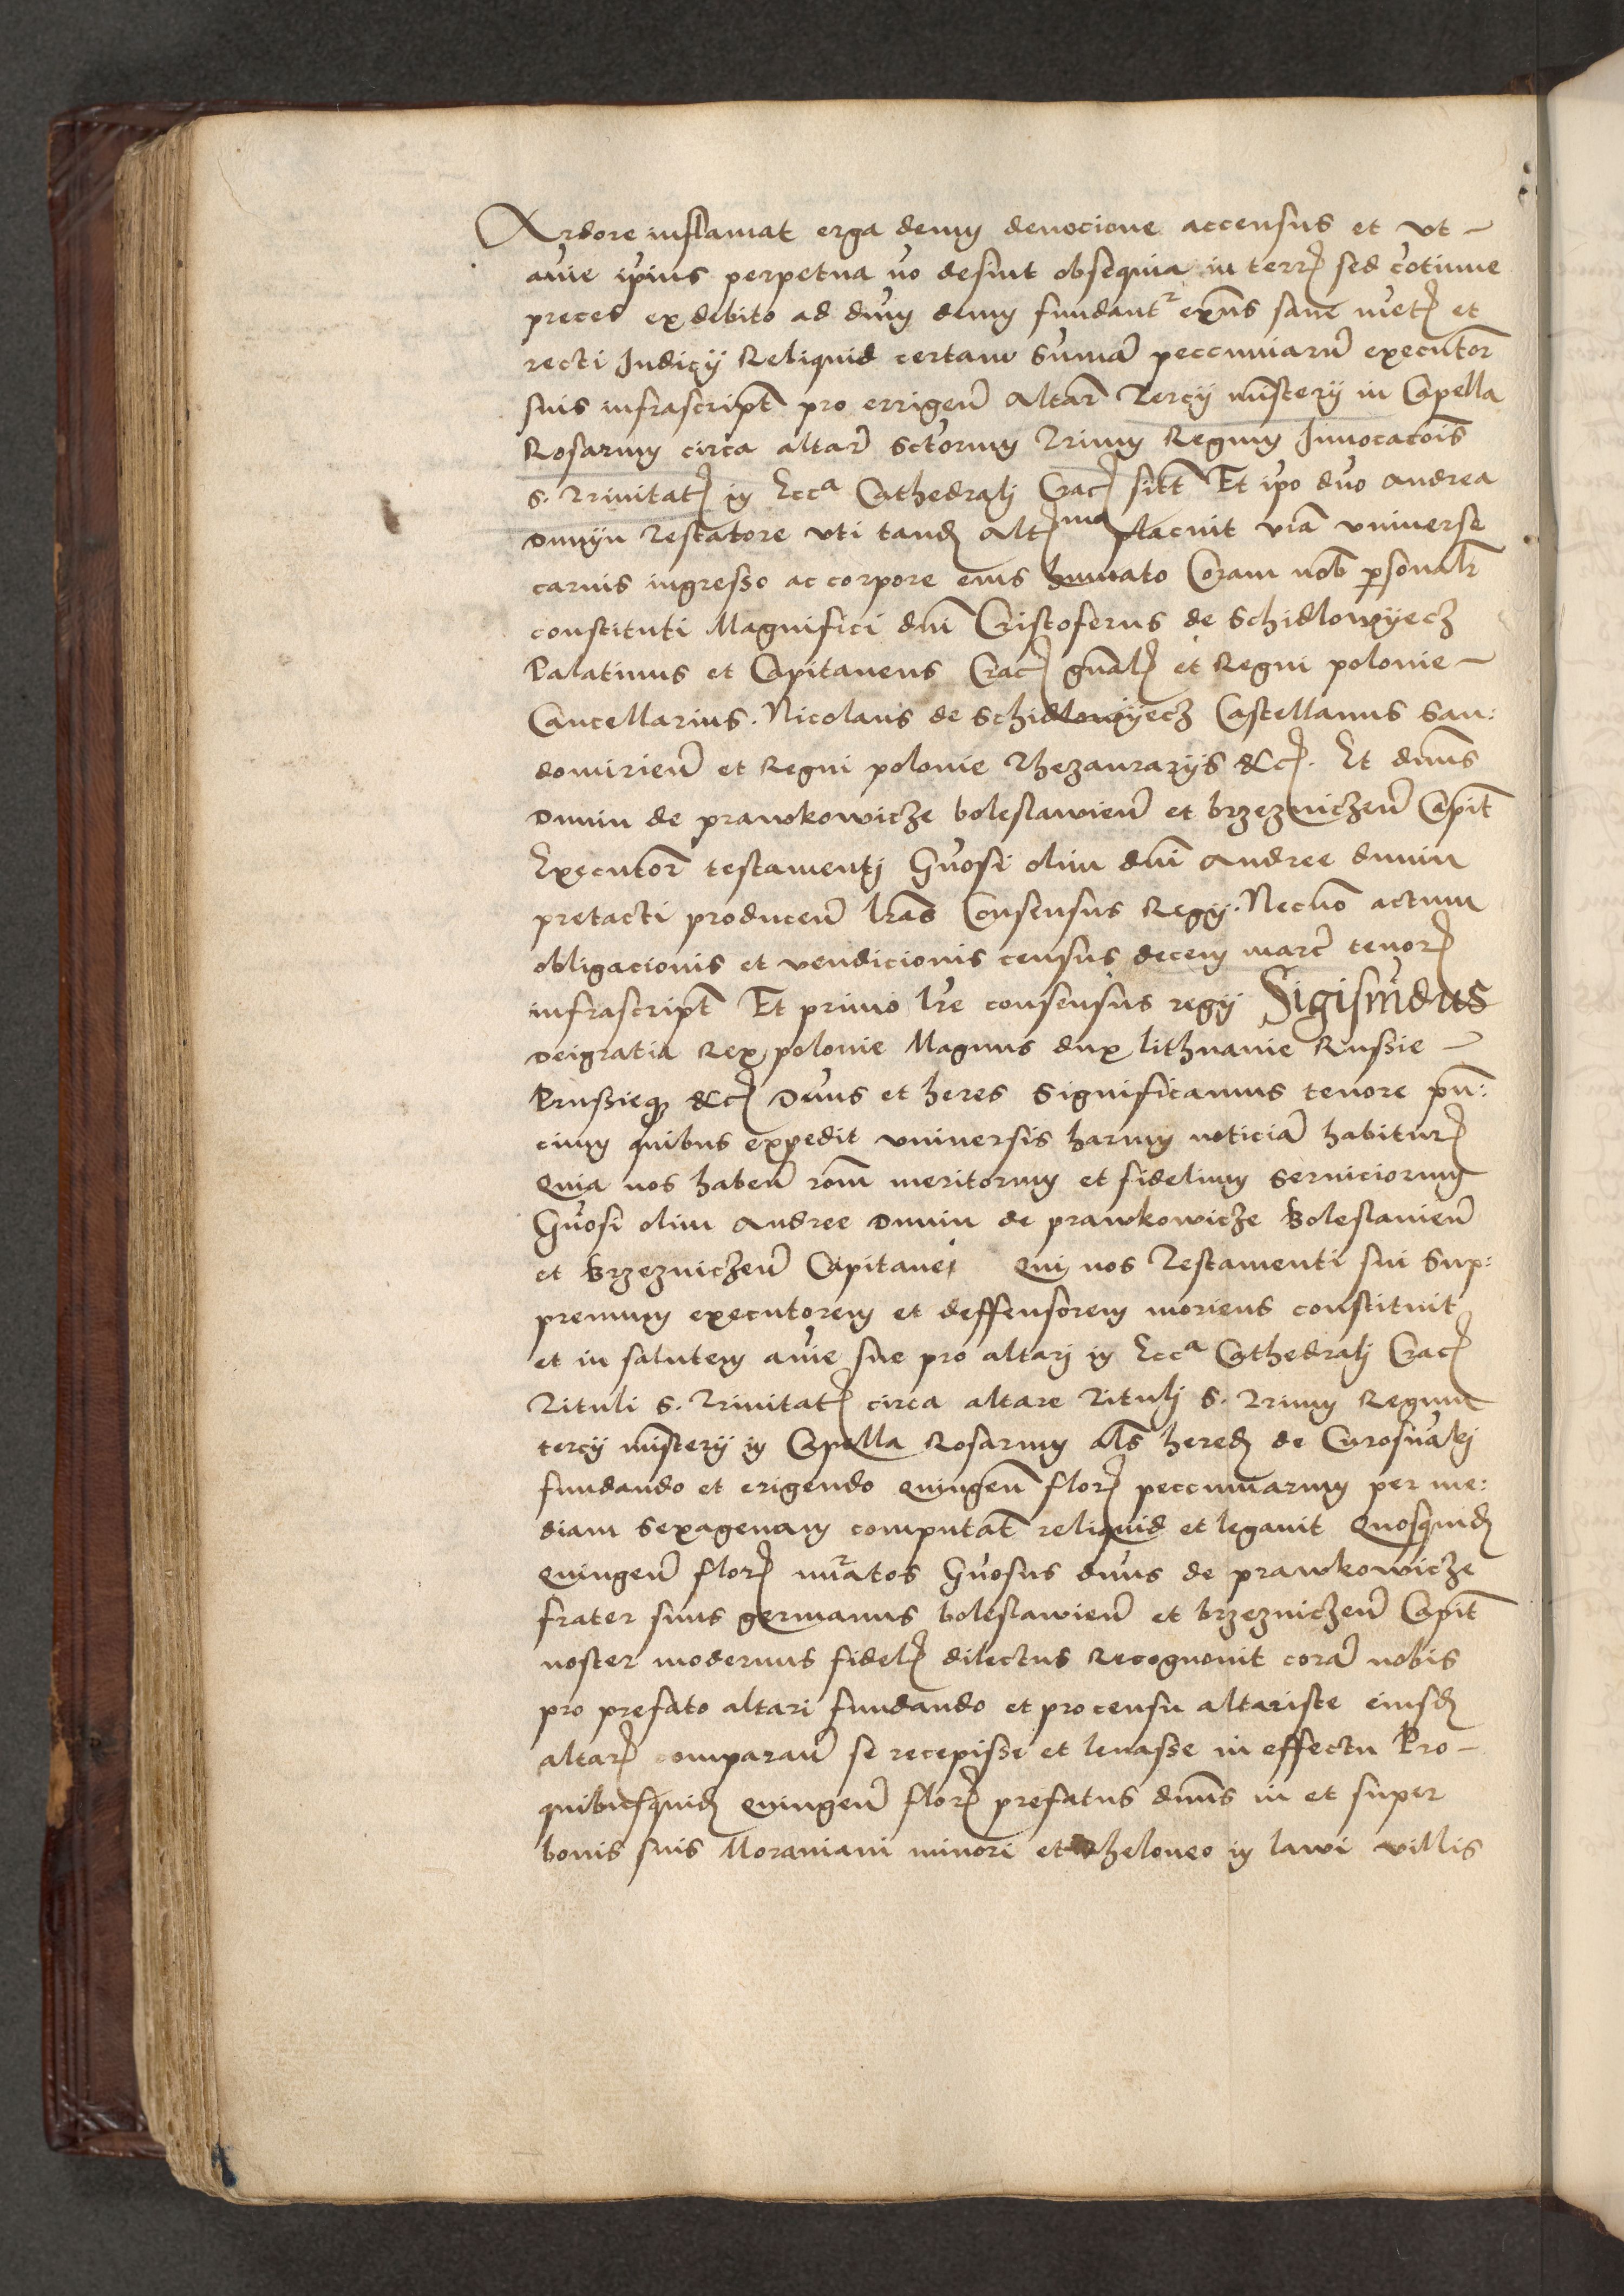 Ardore inflamat erga deum deuocione accensus et vt
aīe ip̄ius perpetua nō desint obsequia in terr̄ sed cōtinue
preces ex debito ad dn̄m deum fundantr exn̄s sane mēt et
recti Judicij Reliquid certam sum̄ā peccuniarū executor̄
suis infrascript̄ pro errigen̄ Altar̄ Tercij mīsterij in Capella
Rosarum circa altar̄ sctorum Trium Regum Inuocacōis
S. Trinitat̄ in Ecca Cathedrali Crac̄ sitt̄ Et ip̄o dn̄o Andrea
Dunyn Testatore vti tand̄ Altmo placuit viā vniuerse
carnis ingresso ac corpore eius humato Coram nob̄ personalr̄
constituti Magnifici dn̄i Cristoferus de Schidlowyecz
Palatinus et Capitaneus Crac̄ gnāl et Regni polonie
Cancellarius. Nicolaus de Schidlowyecz Castellanus San:
domirien̄ et Regni polonie Thezaurarijs &c̄. Et dun̄s
Dunin de prawkowicze boleslawien̄ et brzezniczen̄ Capit̄
Executor̄ testamenti Gn̄osi olim dn̄i Andree dunin
pretacti producen̄ lrās Consensus Regij. Necnō actum
obligacionis et vendicionis census decem marc̄ tenor̄
infrascript̄ Et primo lrē consensus regij Sigismūdus
Deigratia Rex polonie Magnus dux lithuanie Russie
Prussieqz &c̄ Dn̄us et heres Significamus tenore pn̄:
cium quibus expedit vniuersis harum noticiā habitur̄
Quia nos haben̄ rōm meritorum et fidelium seruiciorum
Gn̄osi olim Andree Dunin de prawkowicze Boleslauien̄
et Brzezniczen̄ Capitanei Qui nos Testamenti sui Sup:
premum executorem et deffensorem moriens constituit
et in salutem aīe sue pro altari in Ecca Cathedrali Crac̄
Tituli S. Trinitat̄ circa altare Tituli S. Trium Regum
tercij mīsterij in Capella Rosarum als̄ hered̄ de
fundando et erigendo quingen̄ flor̄ peccuniarum per me:
diam sexagenam computat̄ reliquid et legauit Quosquid̄
quingen̄ flor̄ nūratos Gn̄osus dn̄us de prawkowicze
frater suus germanus boleslawien̄ et brzezniczen̄ Capit̄
noster modernus fidel̄ dilectus Recognouit corā nobis
pro prefato altari fundando et pro censu altariste eiusd̄
altar̄ comparan̄ se recepisse et leuasse in effectu Pro
quibusquid̄ quingen̄ flor̄ prefatus dun̄s in et super
bonis suis Morawiani minori et theloneo in lawi villis